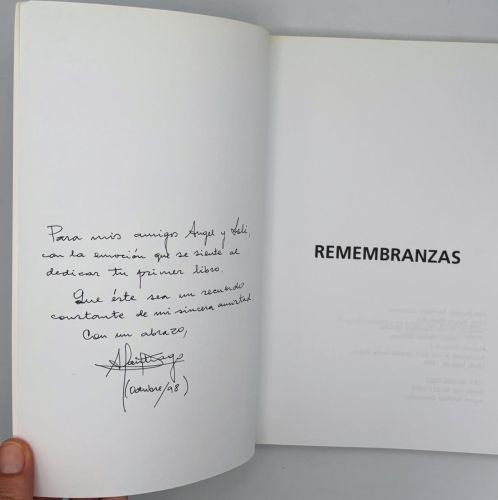 Para mis amigos Angel y
con la emoción que se siente al
dedicar tu primer libro.
Que éste sea un recuerdo
constante de mi sincera amistad.
Con un abrazo,
(Octubre/98)
REMEMBRANZAS